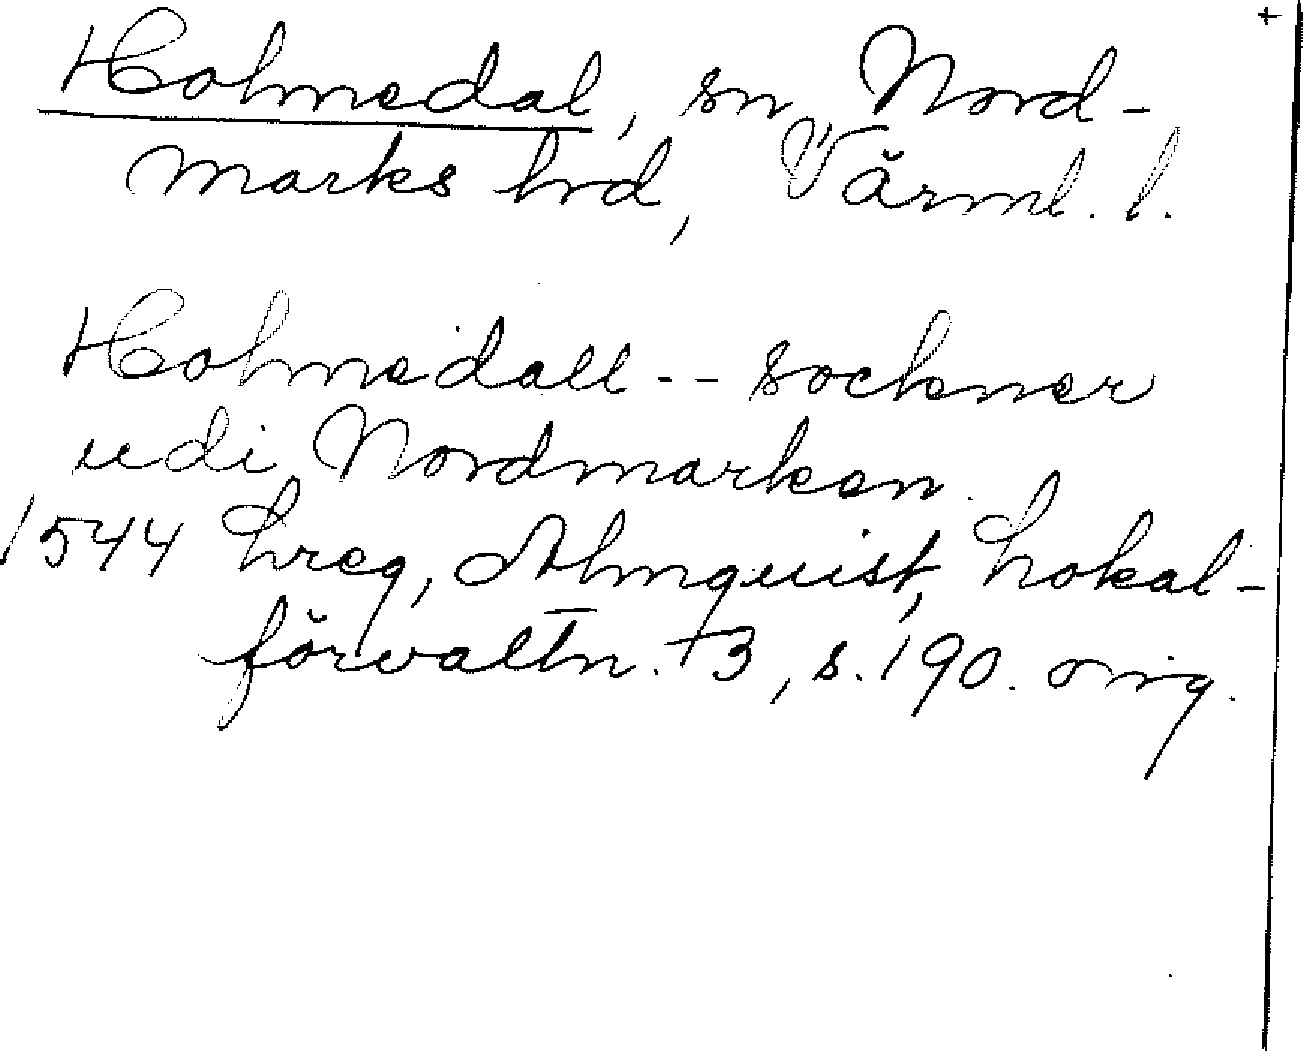 +
Holmedal, sn, Nord-
marks hrd, Värml. l.
Holmedall -- sockner
udi Nordmarken.
1544 Lreg, Almquist, Lokal-
förvaltn. +3, s. 190. orig.